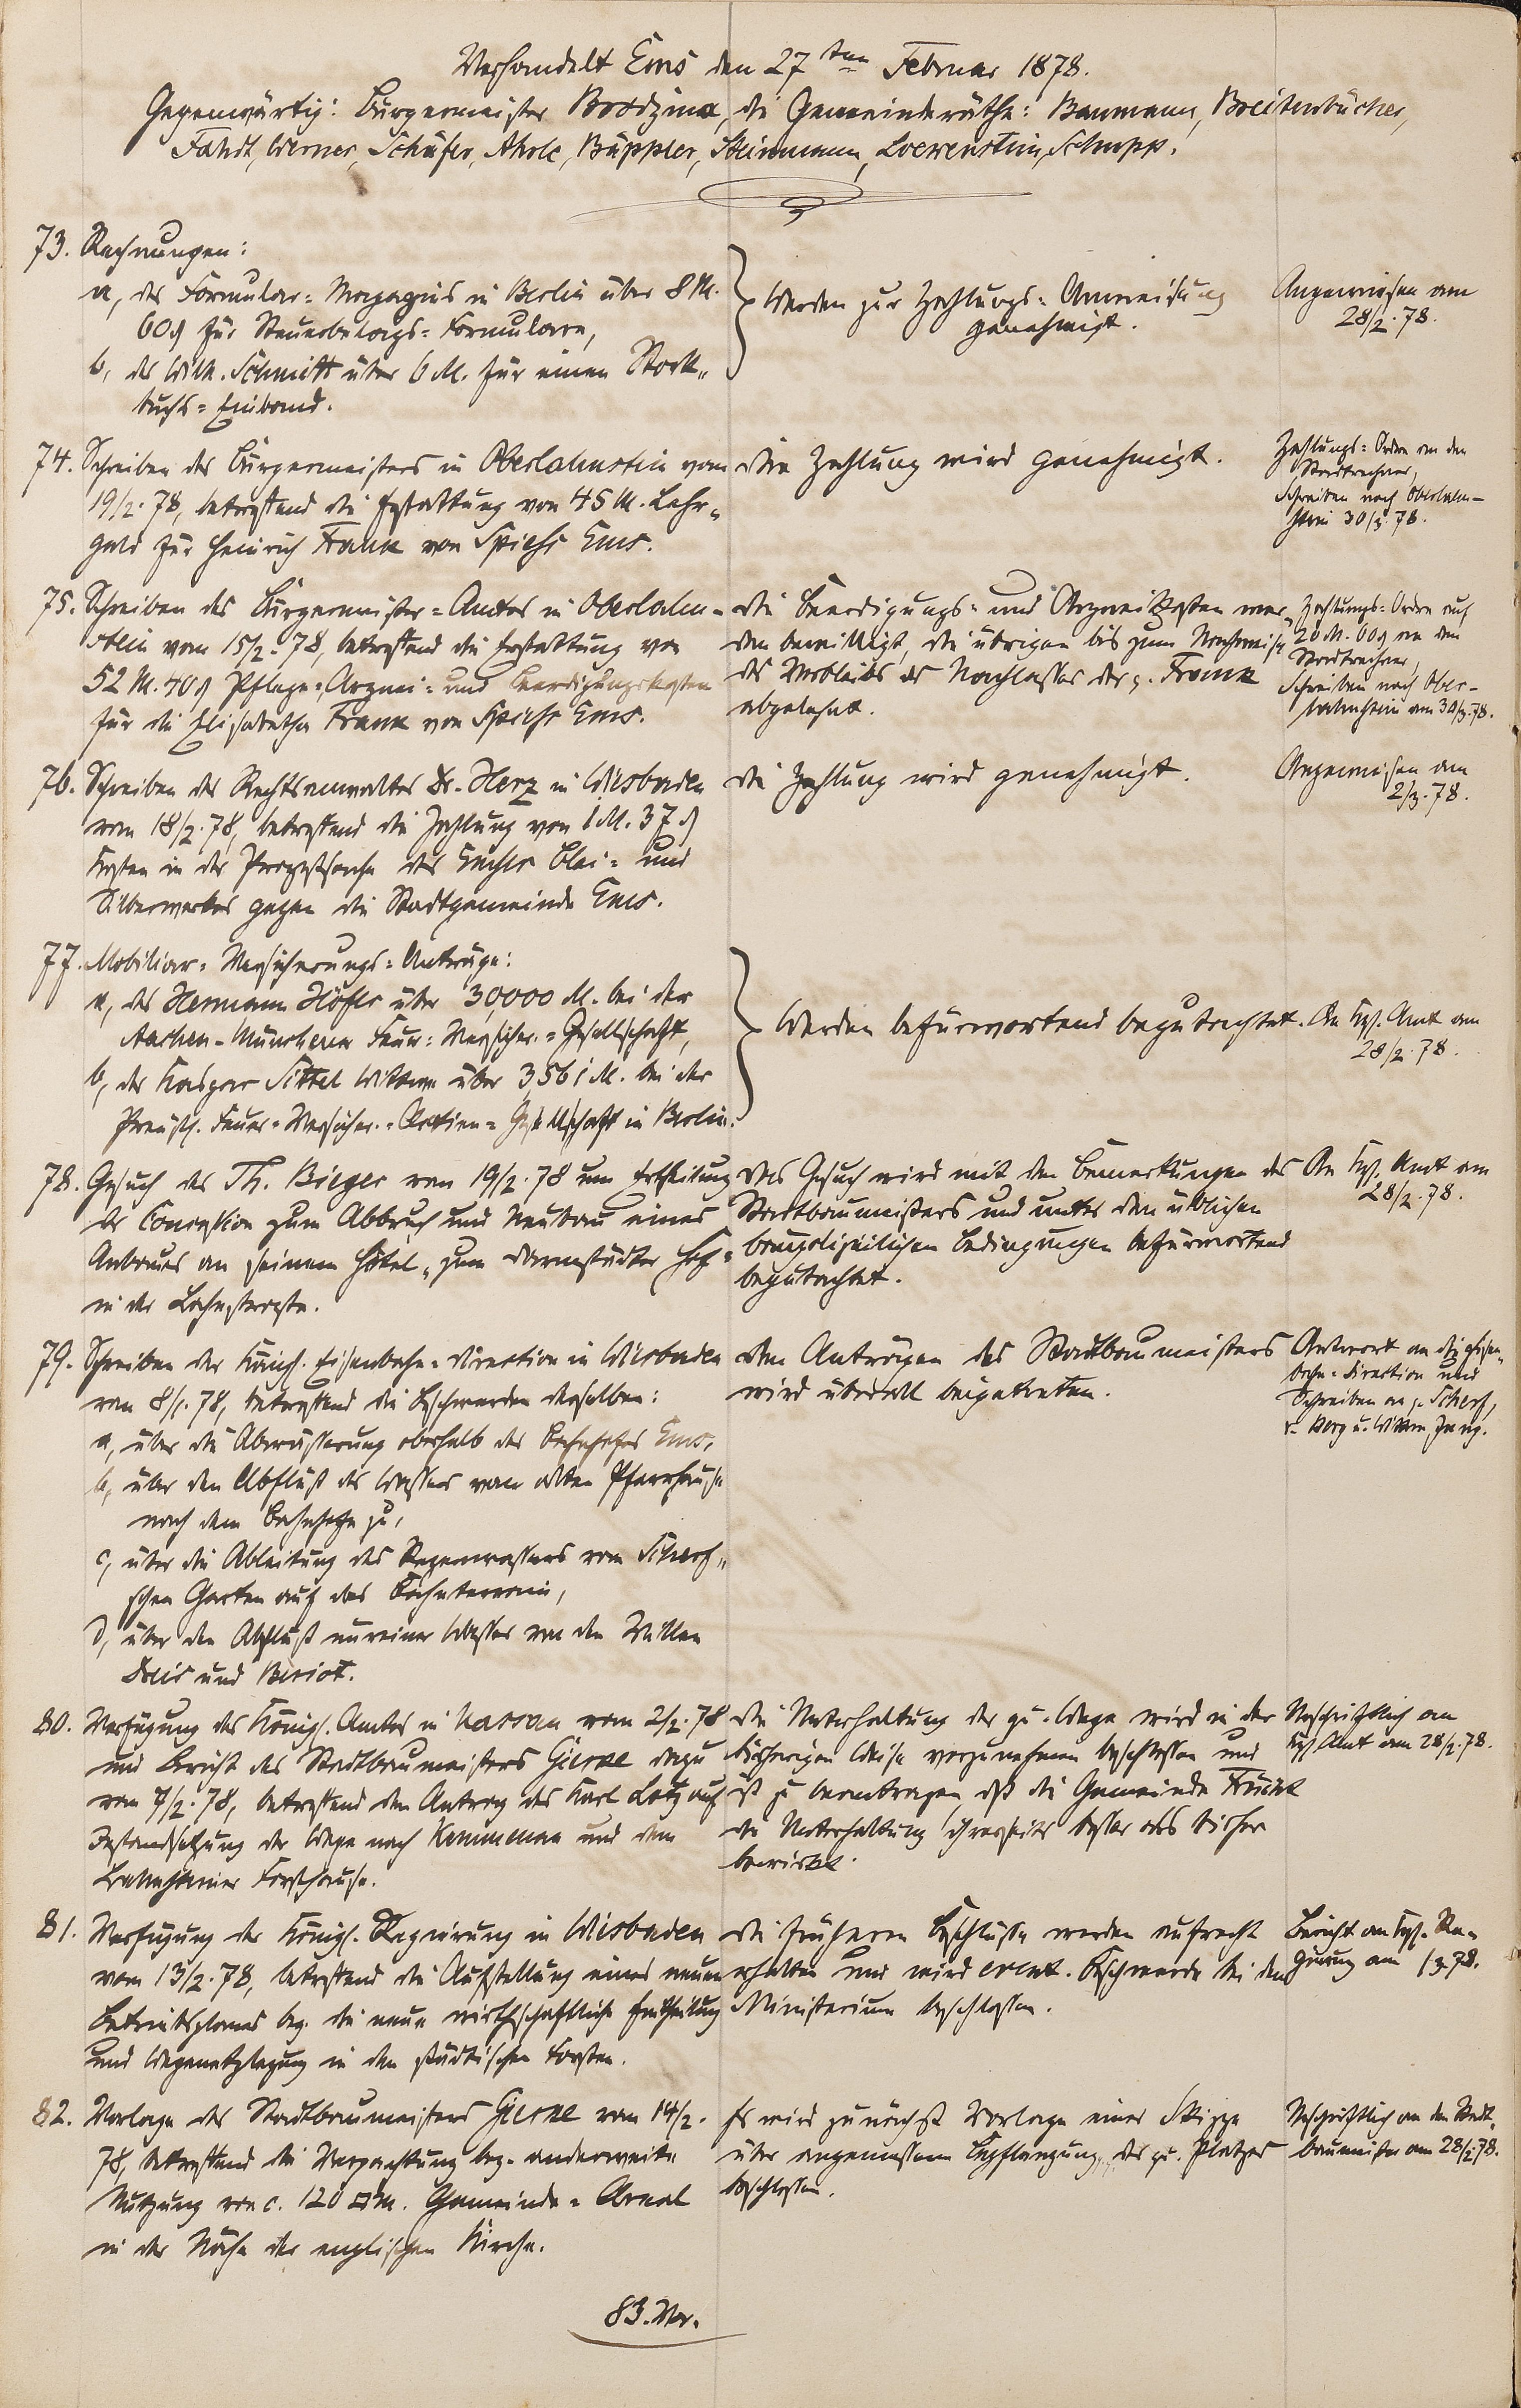 Verhandelt Ems den 27ten Februar 1878.
Gegenwärtig: Bürgermeister Brodzina, die Gemeinderäthe: Baumann, Breitenbücher,
Fahdt, Werner, Schäfer, Ahole, Büppler, Steinmann, Loewenstein, Schupp.
73. Rechnungen:
a, des Formular=Magazins in Berlin über 8 M.
60 ₰ für Steuerbelags=Formulare,
b, des Wilh. Schmitt über 6 M. für einen Stock„
buchs=Einband.
Werden zur Zahlungs=Anweisung
genehmigt.
Angewiesen am
28/2. 78.
74. Schreiben des Bürgermeisters in Oberlahnstein vom
19/2. 78, betreffend die Erstattung von 45 M. Lehr„
geld für Heinrich Frank von Spieß Ems.
Die Zahlung wird genehmigt.
Zahlungs=Ordre an den
Stadtrechner,
Schreiben nach Oberlahn-
stein 30/3. 78.
75. Schreiben des Bürgermeister=Amtes in Oberlahn-
stein vom 15/2. 78, betreffend die Erstattung von
52 M. 40 ₰ Pflege=, Arznei= und Beerdigungskosten
für die Elisabetha Frank von Spieß Ems.
Die Beerdigungs= und Arzneikosten wer„
den bewilligt, die übrigen bis zum Nachweise
des Verbleibs des Nachlasses der p. Frank
abgelehnt.
Zahlungs=Ordre auf
20 M. 60 ₰ an den
Stadtrechner,
Schreiben nach Ober-
lahnstein am 30/3. 78.
76. Schreiben des Rechtsanwaltes Dr. Herz in Wiesbaden
vom 18/2. 78, betreffend die Zahlung von 1 M. 37 ₰
Kosten in der Prozeßsache des Emser Blei= und
Silberwerkes gegen die Stadtgemeinde Ems.
Die Zahlung wird genehmigt.
Angewiesen am
2/3. 78.
77. Mobiliar=Versicherungs=Anträge:
a, des Hermann Höfer über 30,000 M. bei der
Aachen-Münchener Feuer=Versicher.=Gesellschaft,
b, der Kaspar Sittel Wittwe über 3,561 M. bei der
Preuß. Feuer=Versicher.=Actien=Gesellschaft in Berlin.
Werden befürwortend begutachtet.
An Kgl. Amt am
28/2. 78.
78. Gesuch des Th. Bieger vom 19/2. 78 um Ertheilung
der Concession zum Abbruch und Neubau eines
Anbaues an seinem Hôtel „zum Darmstädter Hof"
in der Lahnstraße.
Das Gesuch wird mit den Bemerkungen des
Stadtbaumeisters und unter den üblichen
baupolizeilichen Bedingungen befürwortend
begutachtet.
An Kgl. Amt am
28/2. 78.
79. Schreiben der Königl. Eisenbahn=Direction in Wiesbaden
vom 8/1. 78, betreffend die Beschwerden derselben:
a, über die Abwässerung oberhalb des Bahnhofes Ems,
b, über den Abfluß des Wassers vom alten Pfarrhause
nach dem Bahnhofe zu,
c, über die Ableitung des Regenwassers vom Scherf„
schen Garten auf das Bahnterrain,
d, über den Abfluß unreiner Wasser von den Villen
Deis und Beriot.
Den Anträgen des Stadtbaumeisters
wird überall beigetreten.
Antwort an die Eisen„
bahn=Direction und
Schreiben an p. Scherf,
Herz u. Wittwe Jung.
80. Verfügung des Königl. Amtes in Nassau vom 2/2. 78
und Bericht des Stadtbaumeisters Gierke dazu
vom 7/2. 78, betreffend den Antrag des Karl Lotz auf
Instandsetzung der Wege nach Kemmenau und dem
Lahnsteiner Forsthause.
Die Unterhaltung der qu. Wege wird in der
bisherigen Weise vorzunehmen beschlossen und
ist zu beantragen, daß die Gemeinde Frücht
die Unterhaltung ihrerseits besser als bisher
bewirkt.
Abschriftlich an
Kgl. Amt am 28/2. 78.
81. Verfügung der Königl. Regierung in Wiesbaden
vom 13/2. 78, betreffend die Aufstellung eines neuen
Betriebsplanes bez. die neue wirthschaftliche Eintheilung
und Wegenetzlegung in den städtischen Forsten.
Die früheren Beschlüsse werden aufrecht
erhalten und wird event. Beschwerde bei dem
Ministerium beschlossen.
Bericht an Kgl. Re„
gierung am 1/3. 78.
82. Vorlage des Stadtbaumeisters Gierke vom 14/2.
78, betreffend die Verpachtung bez. anderweite
Nutzung von c. 120 □m. Gemeinde=Areal
in der Nähe der englischen Kirche.
Es wird zunächst Vorlage einer Skizze
über angemessene Bepflanzung des qu. Platzes
beschlossen.
Abschriftlich an den Stadt„
baumeister am 28/2. 78.
83. Ver.